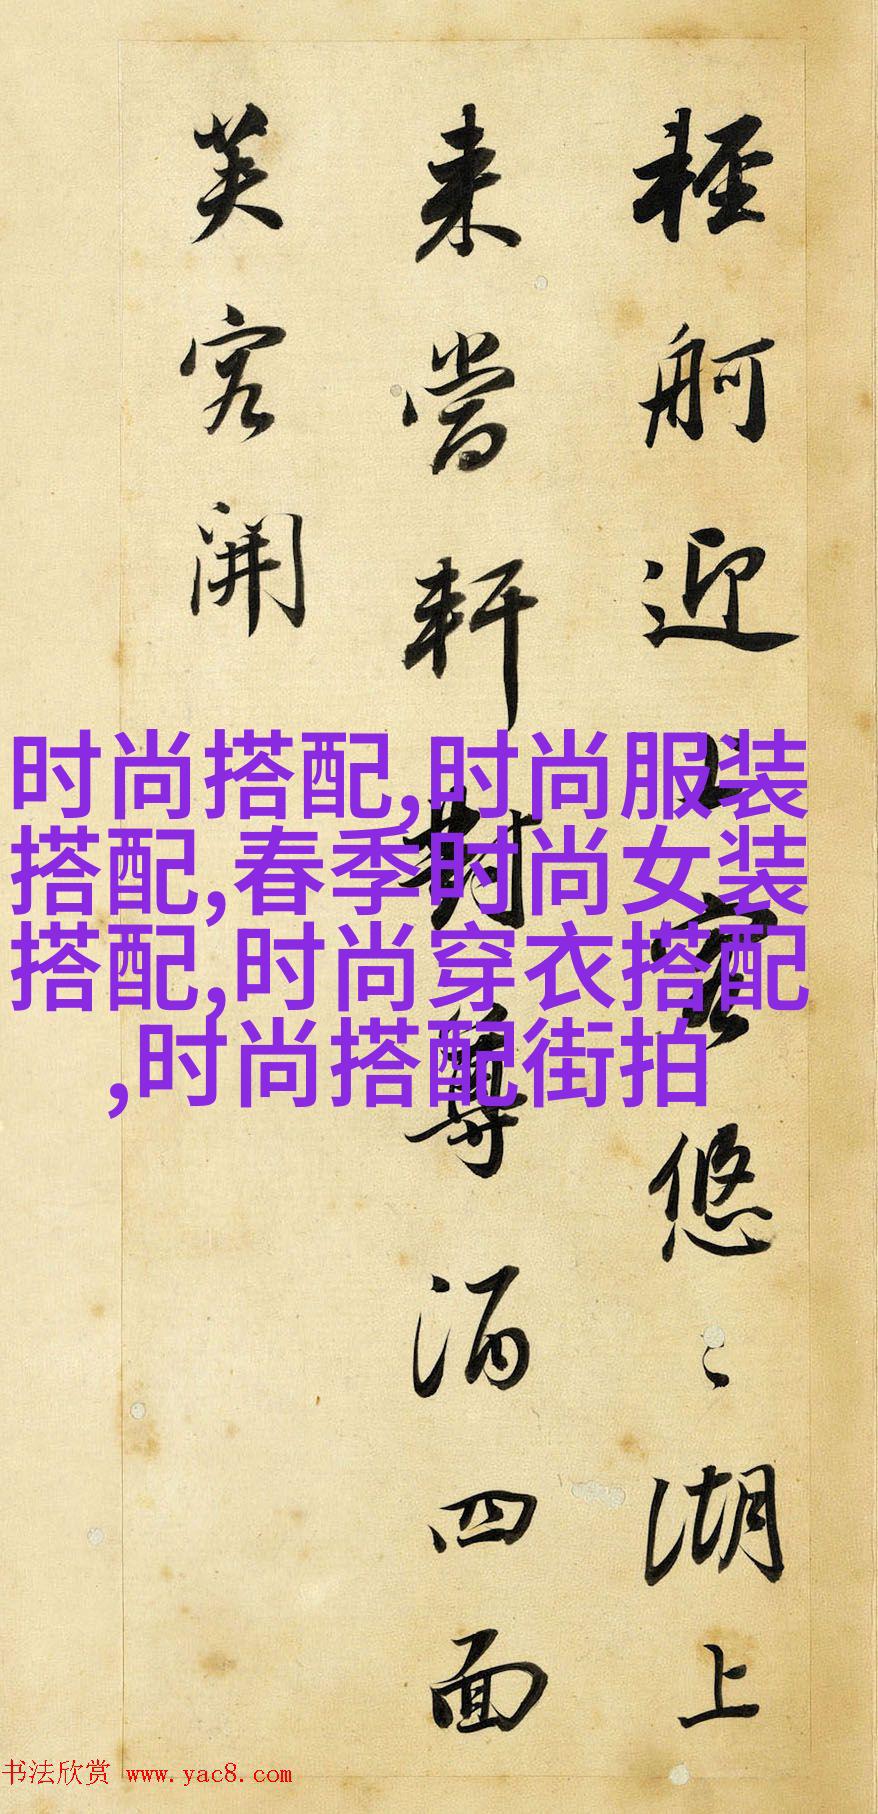 輕舸迎上客悠〻湖上
来當軒對尊酒四面
芙容開
时尚搭配,时尚服装
搭配,春季时尚女装
搭配,时尚穿衣搭配
,时尚搭配街拍
书法欣赏 www.yac8.com